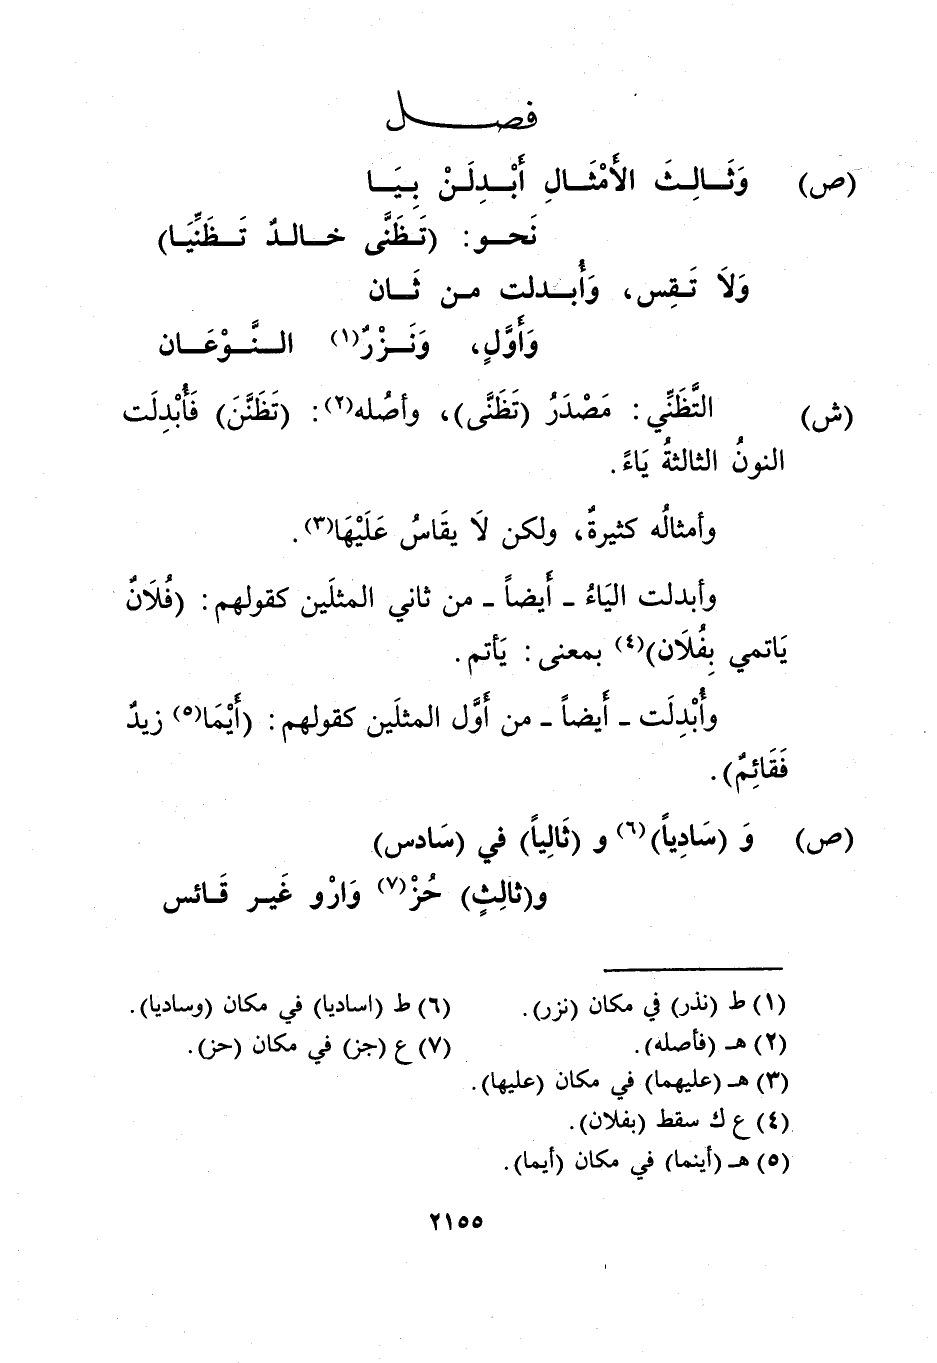 فصل
(ص) وَثَالِثَ الأَمْثَالِ أَبْدِلَنْ بِيَا
نَحو: (تَظَنَّى خالدٌ تَظَنِّيَا)
وَلاَ تَقِس، وَأُبدلت من ثَان
وَأَوَّلٍ، وَنَزْرٌ(١) النَّوْعَان
(ش) التَّظَنِّي: مَصْدَرُ (تَظَنَّى)، وأصُله(٢): (تَظَنَّنَ) فَأُبْدِلَت
النونُ الثالثةُ يَاءً.
وأمثالُه كثيرةٌ، ولكن لاَ يقَاسُ عَلَيْهَا(٣).
وأبدلت اليَاءُ ـ أَيضاً ـ من ثاني المثلَين كقولهم: (فُلاَنٌ
يَاتمي بِفُلاَن)(٤) بمعنى: يَأتم.
وأُبْدِلَت ـ أَيضاً ـ من أَوَّل المثلَين كقولهم: (أَيْمَا(٥) زيدٌ
فَقَائِمٌ).
(ص) وَ (سَادِياً)(٦) و (ثَالِياً) في (سَادس)
و(ثالِثٍ) حُزْ(٧) وَارْو غَير قَائس
(١) ط (نذر) في مكان (نزر).
(٢) هـ (فأصله).
(٣) هـ (عليهما) في مكان (عليها).
(٤) ع ك سقط (بفلان).
(٥) هـ (أينما) في مكان (أيما).
(٦) ط (اساديا) في مكان (وساديا).
(٧) ع (جز) في مكان (حز).
٢١٥٥